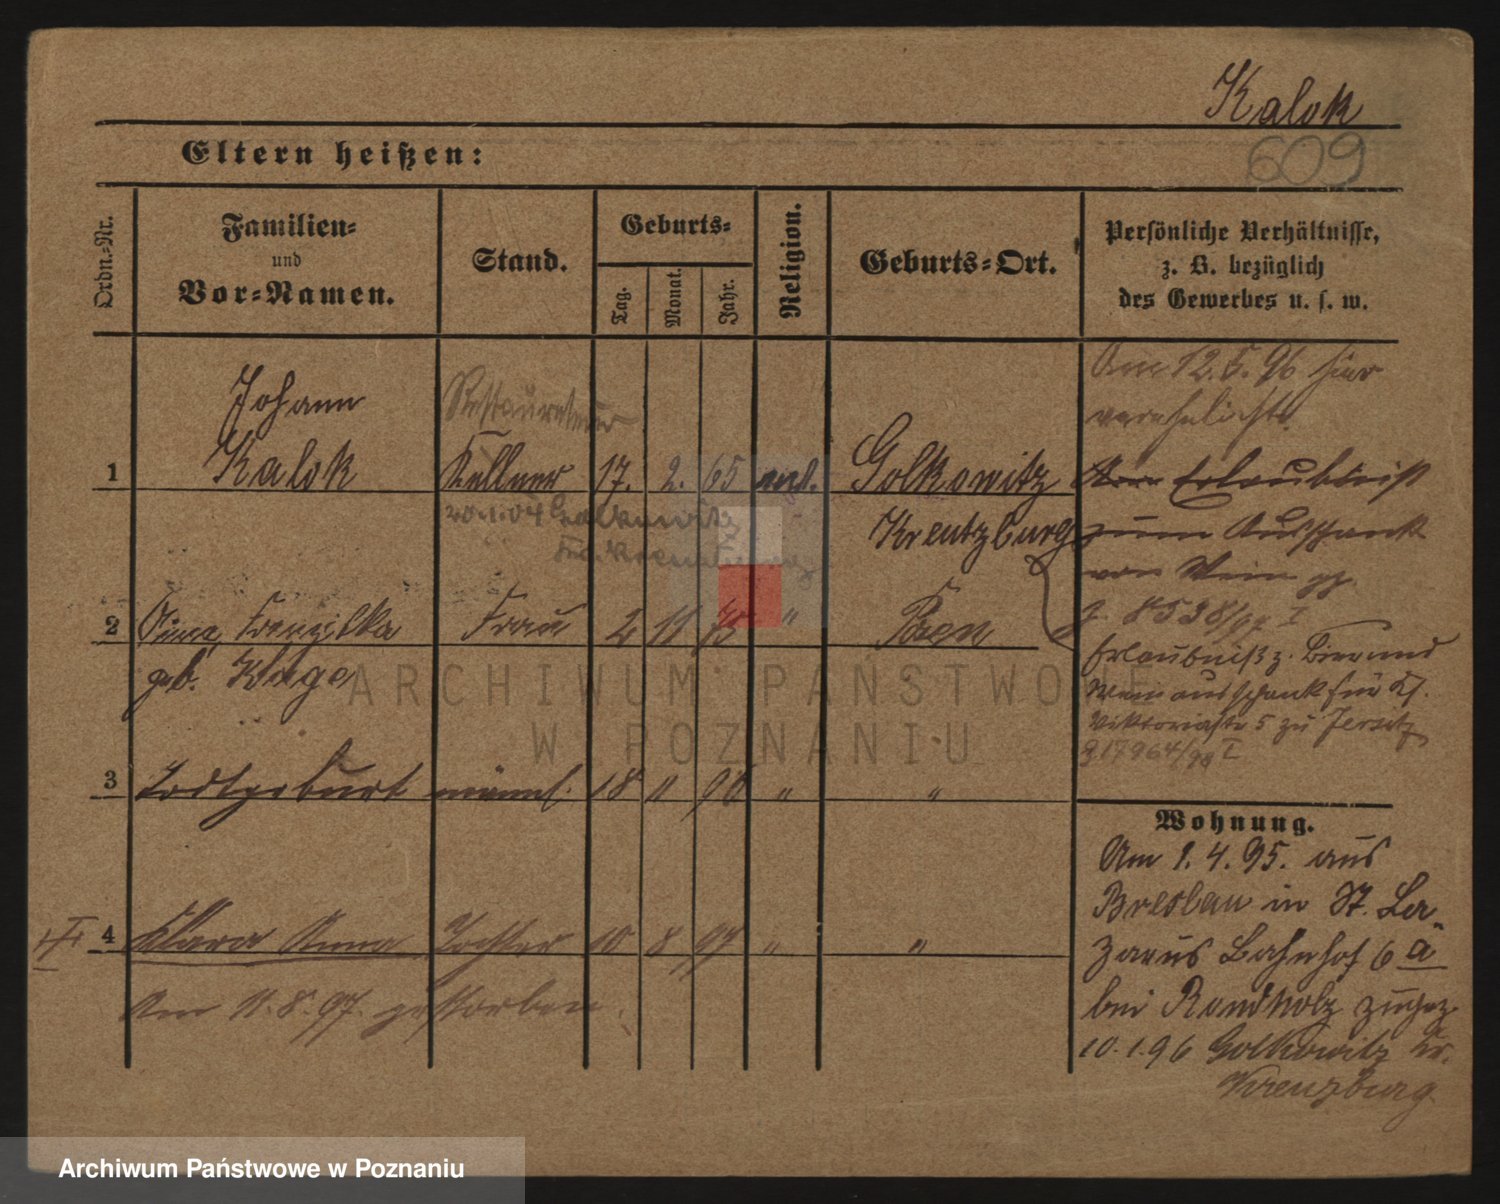 Kalok
609
Eltern heißen:
Ordn.-Nr.
Familien-
und
Vor-Namen.
Stand.
Geburts-
Tag.
Monat.
Jahr.
Religion.
Geburts-Ort.
Persönliche Verhältnisse,
z. B. bezüglich
des Gewerbes u. s. w.
Johann
Restaurateur
Am 12.5.96 hier
verehelicht.
1 Kalok Kellner 17. 2. 65 Golkowitz
Erlaubniß
20.1.04 Golkowitz
Kreutzburg
zum Ausschank
von Wein
2 Franziska Frau 2 11 " Posen
8538/97 I
geb. Kluge
Erlaubniß z. Bier und
Weinausschank für
Viktoriastr 5 zu Jersitz
17964/98 I
3 Todtgeburt männl. 18 " " "
Wohnung.
Am 1.4.95. aus
Breslau in St. La-
4 Klara Anna Tochter 10 8 97 " "
zarus Bahnhof 6 a
Am 11.8.97. gestorben.
bei Rondholz zugez.
10.1.96 Golkowitz Kr.
Kreuzburg
ARCHIWUM PAŃSTWOWE
W POZNANIU
Archiwum Państwowe w Poznaniu